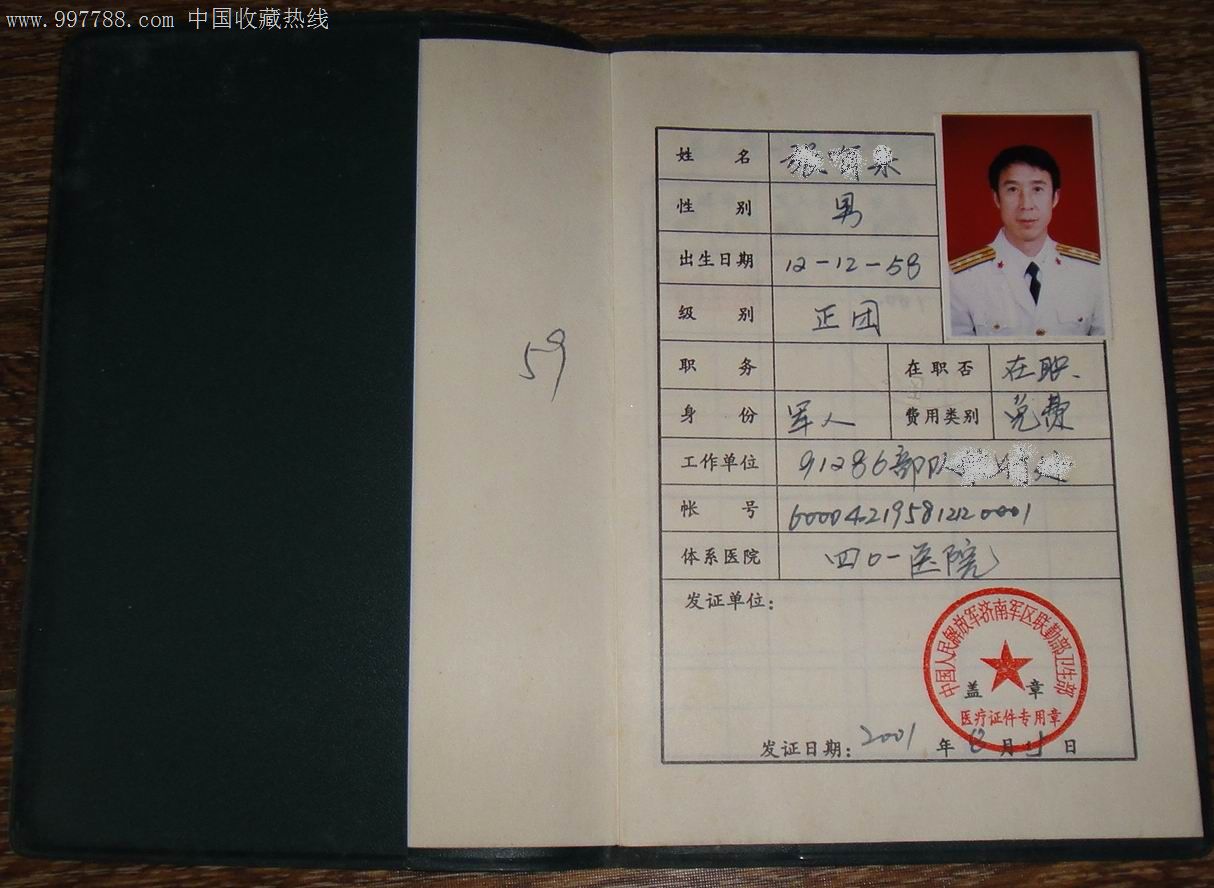 www.997788.com 中国收藏热线
59
姓 名
性 别 男
出生日期 12-12-58
级 别 正团
职 务 在职否 在职.
身 份 军人 费用类别 免费
工作单位 91286部队 处
帐 号 600042195812120001
体系医院 四0一医院
发证单位:
中国人民解放军济南军区联勤部卫生部
盖 章
医疗证件专用章
发证日期: 2001 年 月 日